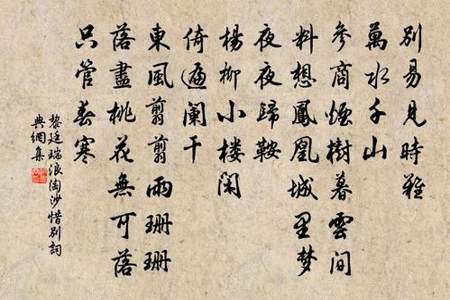 別易見時難
萬水千山
參商煙樹暮雲間
料想鳳凰城里梦
夜夜歸鞍
楊柳小楼閑
倚遍闌干
東風翦翦雨珊珊
落盡桃花無可落
只管春寒
黎廷瑞浪淘沙惜別詞
典網集